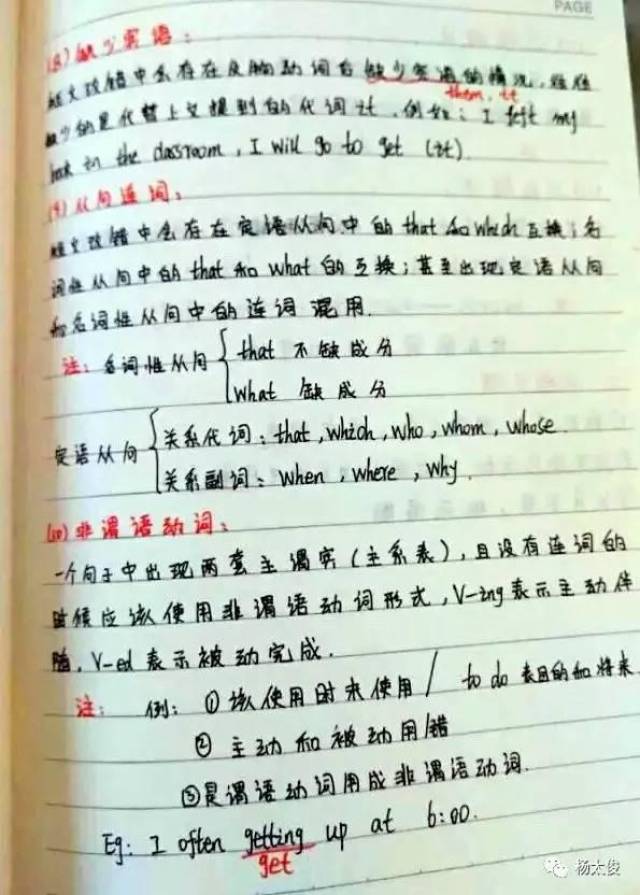 PAGE
(8) 缺少宾语：
短文改错中会存在及物动词后缺少宾语的情况，往往
them, it
缺少的是代替上文提到的代词it．例如：I left my
book in the classroom, I will go to get (it).
(9) 从句连词：
短文改错中会存在定语从句中的that和which互换；名
词性从句中的that和what的互换；甚至出现定语从句
和名词性从句中的连词混用．
注：名词性从句 that 不缺成分
what 缺成分
定语从句 关系代词：that, which, who, whom, whose
关系副词：when, where, why.
(10) 非谓语动词：
一个句子中出现两套主谓宾（主系表），且没有连词的
时候应该使用非谓语动词形式，V-ing表示主动伴
随，V-ed表示被动完成．
注： 例：①该使用时未使用 / to do 表目的和将来
② 主动和被动用错
③是谓语动词用成非谓语动词．
Eg: I often getting up at 6:00.
get
杨太俊